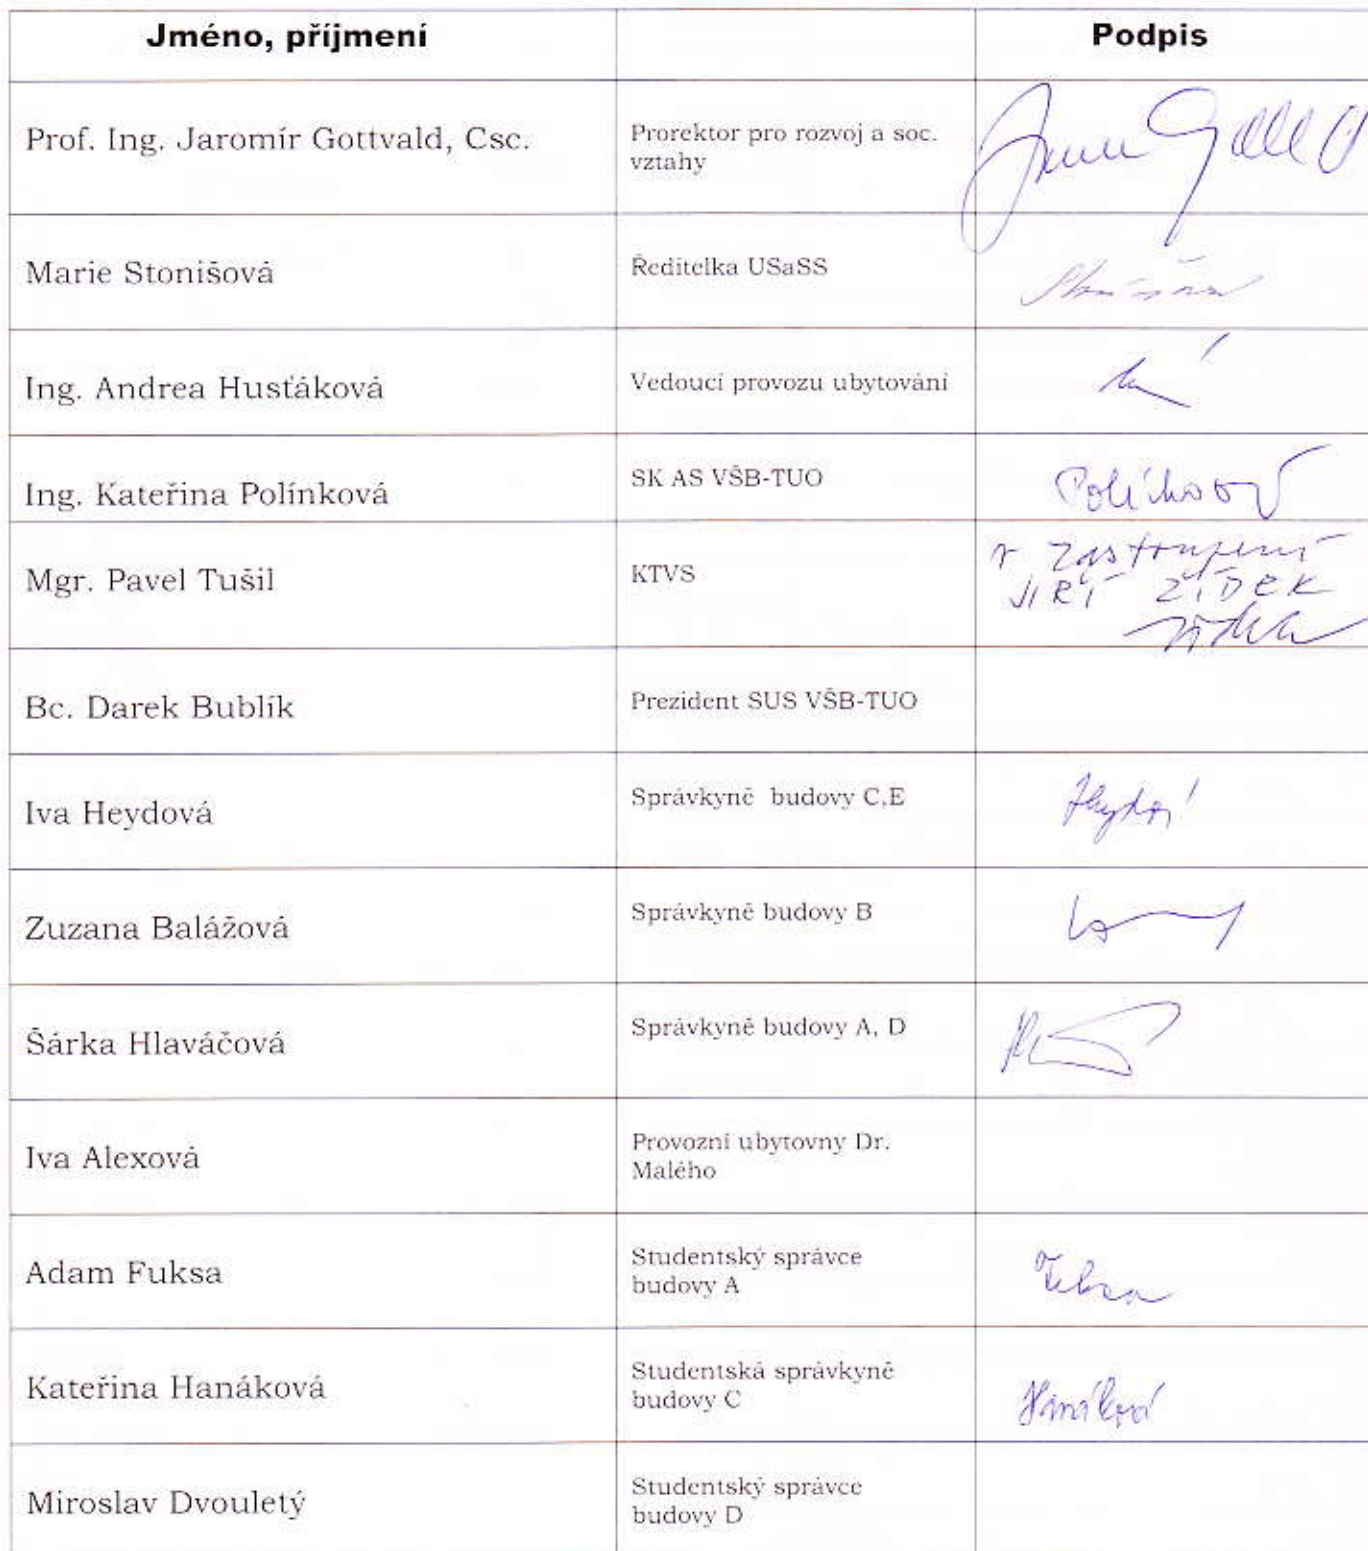 Jméno, příjmení Podpis
Prof. Ing. Jaromír Gottvald, Csc. Prorektor pro rozvoj a soc.
vztahy
Marie Stonišová Ředitelka USaSS
Ing. Andrea Husťáková Vedoucí provozu ubytování
Ing. Kateřina Polínková SK AS VŠB-TUO
Mgr. Pavel Tušil KTVS v zastoupení
JIŘÍ ŽÍDEK
Bc. Darek Bublík Prezident SUS VŠB-TUO
Iva Heydová Správkyně budovy C,E
Zuzana Balážová Správkyně budovy B
Šárka Hlaváčová Správkyně budovy A, D
Iva Alexová Provozní ubytovny Dr.
Malého
Adam Fuksa Studentský správce
budovy A
Kateřina Hanáková Studentská správkyně
budovy C Hanáková
Miroslav Dvouletý Studentský správce
budovy D